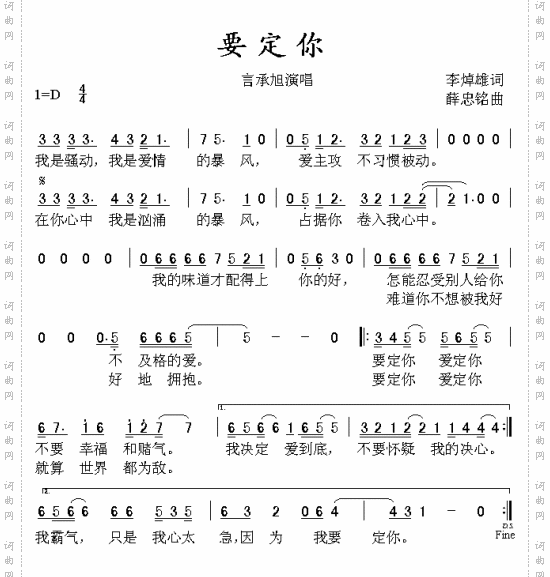 要定你
言承旭演唱
李焯雄词
1=D 4/4
薛忠铭曲
3 3 3 3· 4 3 2 1· | 7 5· 1 0 | 0 5 1 2· 3 2 1 2 3 | 0 0 0 0 |
我是骚动，我是爱情 的暴 风， 爱主攻 不习惯被动。
3 3 3 3· 4 3 2 1· | 7 5· 1 0 | 0 5 1 2· 3 2 1 2 2 | 2 1·0 0 |
在你心中 我是汹涌 的暴 风， 占据你 卷入我心中。
0 0 0 0 | 0 6 6 6 6 7 5 2 1 | 0 5 6 3 0 | 0 6 6 6 6 7 5 2 1 |
我的味道才配得上 你的好， 怎能忍受别人给你
难道你不想被我好
0 0 0·5 6 6 6 5 | 5 - - 0 |: 3 4 5 5 5 6 5 5 |
不 及格的爱。 要定你 爱定你
好 地 拥抱。 要定你 爱定你
6 7· 1 6 1 2 7 7 | 1. 6 5 6 6 1 6 5 6 | 3 2 1 2 2 1 4 4 :|
不要 幸福 和赌气。 我决定 爱到底， 不要怀疑 我的决心。
就算 世界 都为敌。
2. 6 5 6 6 6 6 5 3 5 | 6 3 2 0 6 4 | 4 3 1 - 0 :|
D.S.
我霸气， 只是 我心太 急，因 为 我要 定你。 Fine
词曲网